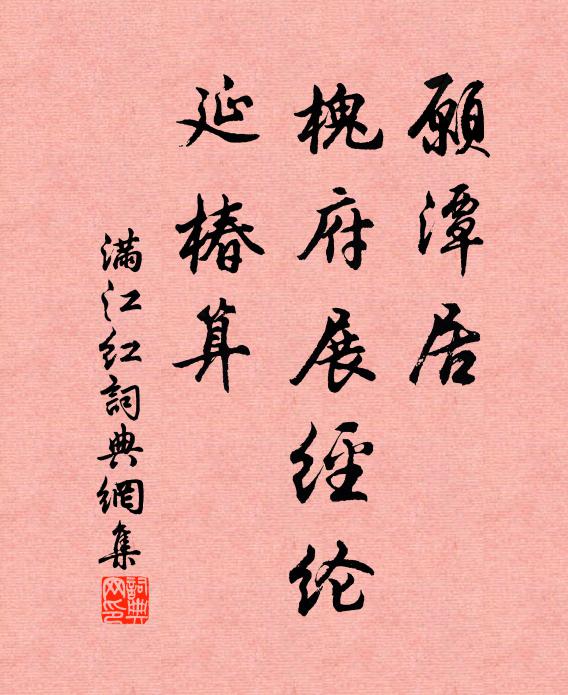 願潭居
槐府展經纶
延椿算
滿江红詞典網集
詞典网印